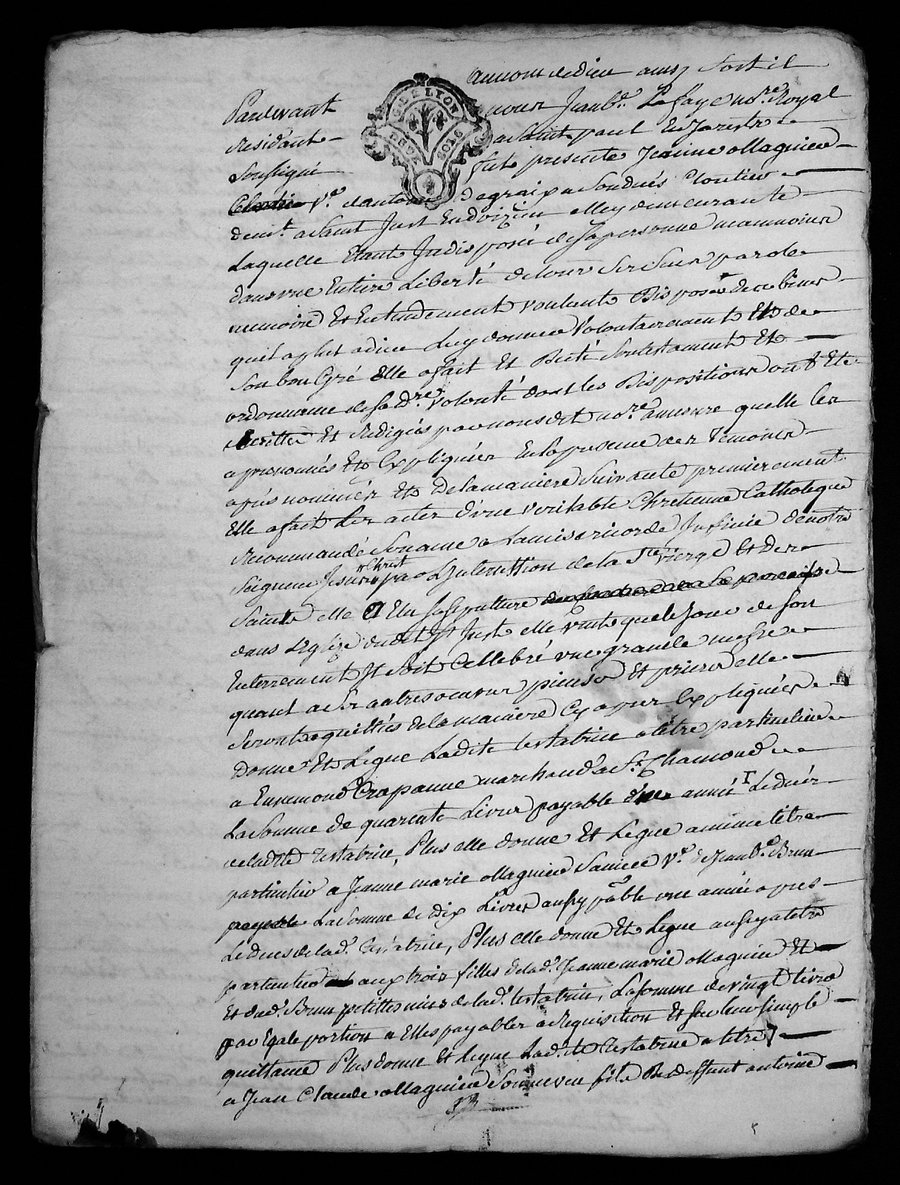 au nom de dieu ainsy soit il
Pardevant nous Jean b.te Lafaye no.re Royal
résidant a saint paul En Jarest
soussigné fut presente Jeanne Magnien
v.e d'antoine degraix a son décès Cloutier
dem.t a Saint Just En doizieu elle y demeurante
Laquelle Etante Indisposée de sa personne neanmoins
dans une Entiere Liberté de tous ses sens parole
memoire Et Entendement voulante Disposée des biens
quil a plut a dieu Luy donner volontairement Et de
son bon Gré Elle a fait Et Dicté son testament Et
ordonnance de sa d.re volonté dont les Dispositions ont Eté
Ecritte Et Redigées par nous dit no.re amesure quelle les
a prononcés Et Expliquées En la presence des Temoins
aprés nommés Et de la maniere suivante premierement
Elle a fait Les actes d'une veritable Chretienne Catholique
Recommandé son ame a La misericorde Infinie de notre
Seigneur Jesus Christ par L'Intercession de la S.te vierge Et des
Saints elle Elu sa sepulture
dans L'Eglise dudit S.t Just elle veut que le Jour de son
Enterrement Il soit Cellebré une grande messe
quant a Ses autres oeuvres pieuses Et prieres elle
seront acquittés de la maniere Cy aprés Expliquées
donne Et Legue Ladite testatrice a titre particulier
a Ennemond Crapanne marchand a S.t Chamond
La somme de quarente Livres payable une année Le décés
de ladite Testatrice, Plus elle donne Et Legue a meme titre
particulier a Jeanne marie Magnien sa niece v.e de Jean b.te Brun
La somme de dix Livres aussy p.able une année a prés
Le decés de la d.e testatrice, Plus elle donne Et Legue aussy a titre
particulier aux trois filles de la d.e Jeanne marie Magnien Et
Et dud.t Brun petittes nieces de la d.e testatrice, La somme de vingt livres
par Egale portion a Elles payables a Requisition Et sur leur simple
quittance Plus donne Et Legue Lad.ite Testatrice a titre
a Jean Claude Magnien son neveu fils De deffunt antoine
G.DE LYON
DEUX SOLS